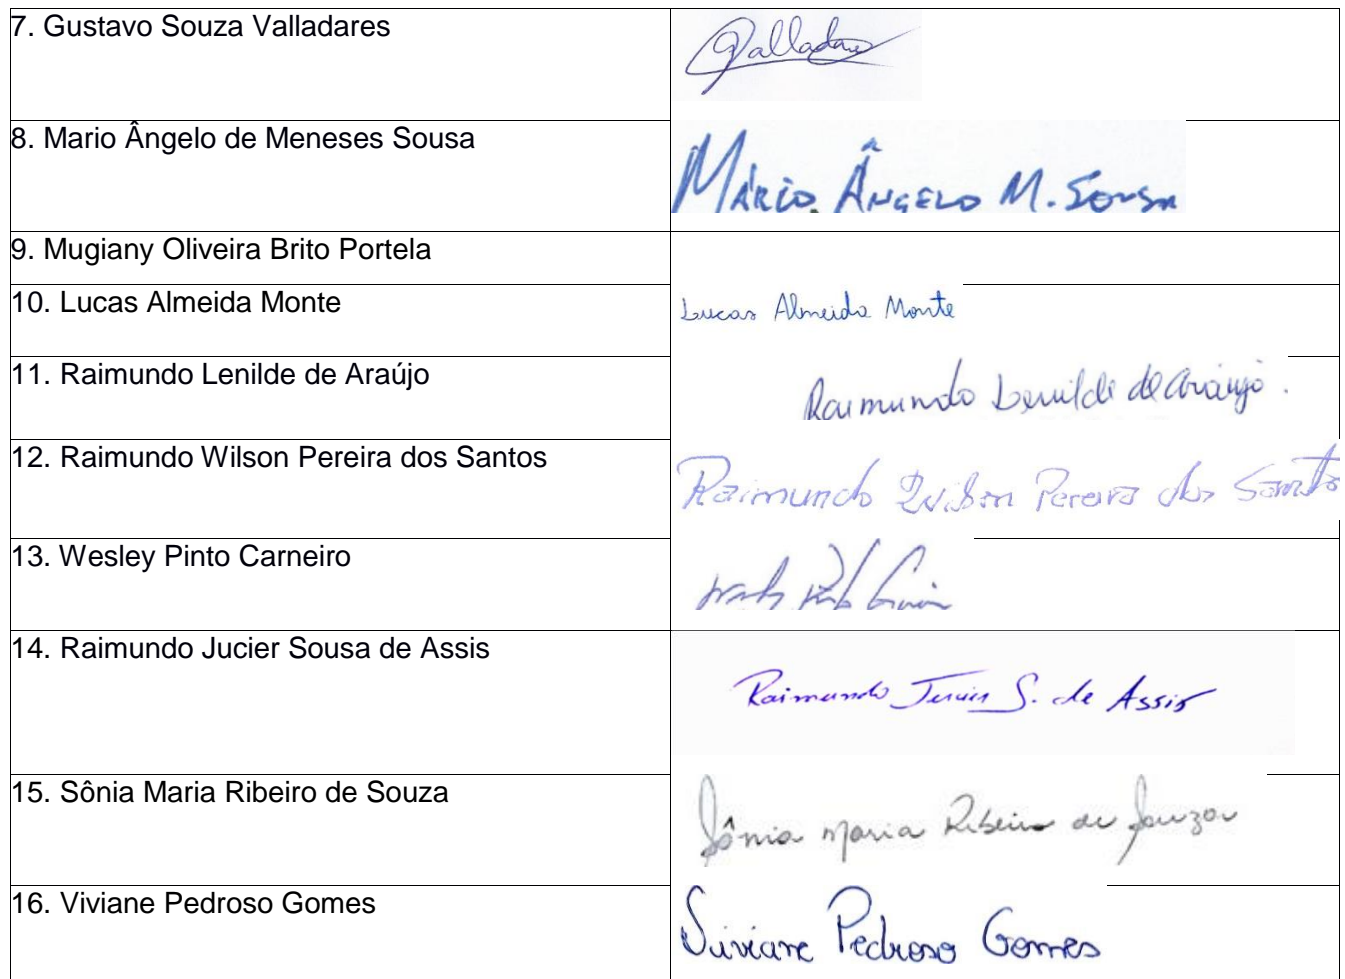 7. Gustavo Souza Valladares
Valladares
8. Mario Ângelo de Meneses Sousa
MÁRIO ÂNGELO M. SOUSA
9. Mugiany Oliveira Brito Portela
10. Lucas Almeida Monte
Lucas Almeida Monte
11. Raimundo Lenilde de Araújo
Raimundo Lenilde de Araújo.
12. Raimundo Wilson Pereira dos Santos
Raimundo Wilson Pereira dos Santos
13. Wesley Pinto Carneiro
14. Raimundo Jucier Sousa de Assis
Raimundo Jucier S. de Assis
15. Sônia Maria Ribeiro de Souza
Sônia Maria Ribeiro de Souza
16. Viviane Pedroso Gomes
Viviane Pedroso Gomes